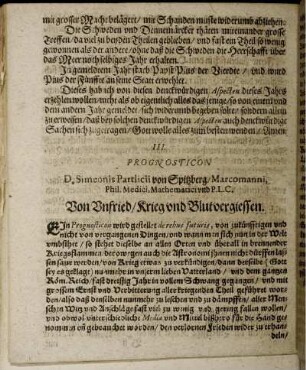 mit grosser Macht belägert / mit Schanden muste widerumb abziehen.
Die Schweden und Dennemärcker thäten mit einander grosse
Treffen / da viel zu beeden Theilen geblieben / und fast ein Theil so wenig
gewonnen als der andere / ohne daß die Schweden der Herrschafft über
das Meer noch selbiges Jahr erhalten.
In gemeldtem Jahr starb Papst Pius der Vierdte / und ward
Pius der Fünffte an seine Statt erwehlet.
Dieses hab ich von diesen denckwürdigen Aspecten dieses Jahrs
erzehlen wollen / nicht als ob eigentlich alles das jenige so von einem und
dem andern Jahr gemeldet / sich widerumb begeben / sondern allein
zu erweisen / daß bey solchen denckwürdigen Aspecten auch denckwürdige
Sachen sich zugetragen / Gott wolle alles zum besten wenden / Amen.
III.
PROGNOSTICON
D. Simeonis Partlicii von Spitzberg / Marcomanni,
Phil. Medici. Mathematici und P.L.C.
Von Unfried / Krieg und Blutvergiessen.
EIn Prognosticon wird gestellet de rebus futuris, von zukünfftigen und
nicht von vergangenen Dingen, und wann man sich nur in der Welt
umbsihet / so stehet dieselbe an allen Orten und überall in brennender
Kriegsflammen / derowegen auch die Astronomi ihnen nicht dürffen
sauer werden / von Krieg etwas zu verkündigen / dann derselbe (Gott
sey es geklagt) nunmehr in unserm lieben Vatterland / und dem gantzen
Röm. Reich / fast dreissig Jahr in vollem Schwang gegangen / und mit
grossem Ernst und Verbitterung aller kriegenden Theil geführet wor-
den / also daß denselben nunmehr zu leschen und zu dämpffen / aller Men-
schen Witz und Anschläge fast viel zu wenig und gering fallen wollen /
und obwol unterschiedliche Media und Mittel bißhero für die Hand ge-
nommen und gebrauchet worden / den verlornen Frieden wider zu erhan-
deln /